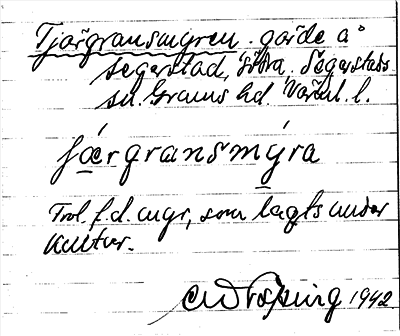 Tjärgransmyren. gärde å
Segerstad, Södra, Segerstads
sn. Grums hd. Värml. l.
fǽrgransmýra
Trol. f.d. myr, som lagts under
kultur.
1942